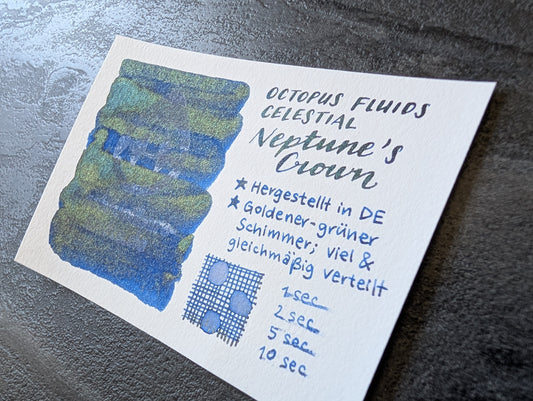 OCTOPUS FLUIDS
CELESTIAL
Neptune's
Crown
★ Hergestellt in DE
★ Goldener-grüner
Schimmer; viel &
gleichmäßig verteilt
1 sec
2 sec
5 sec
10 sec